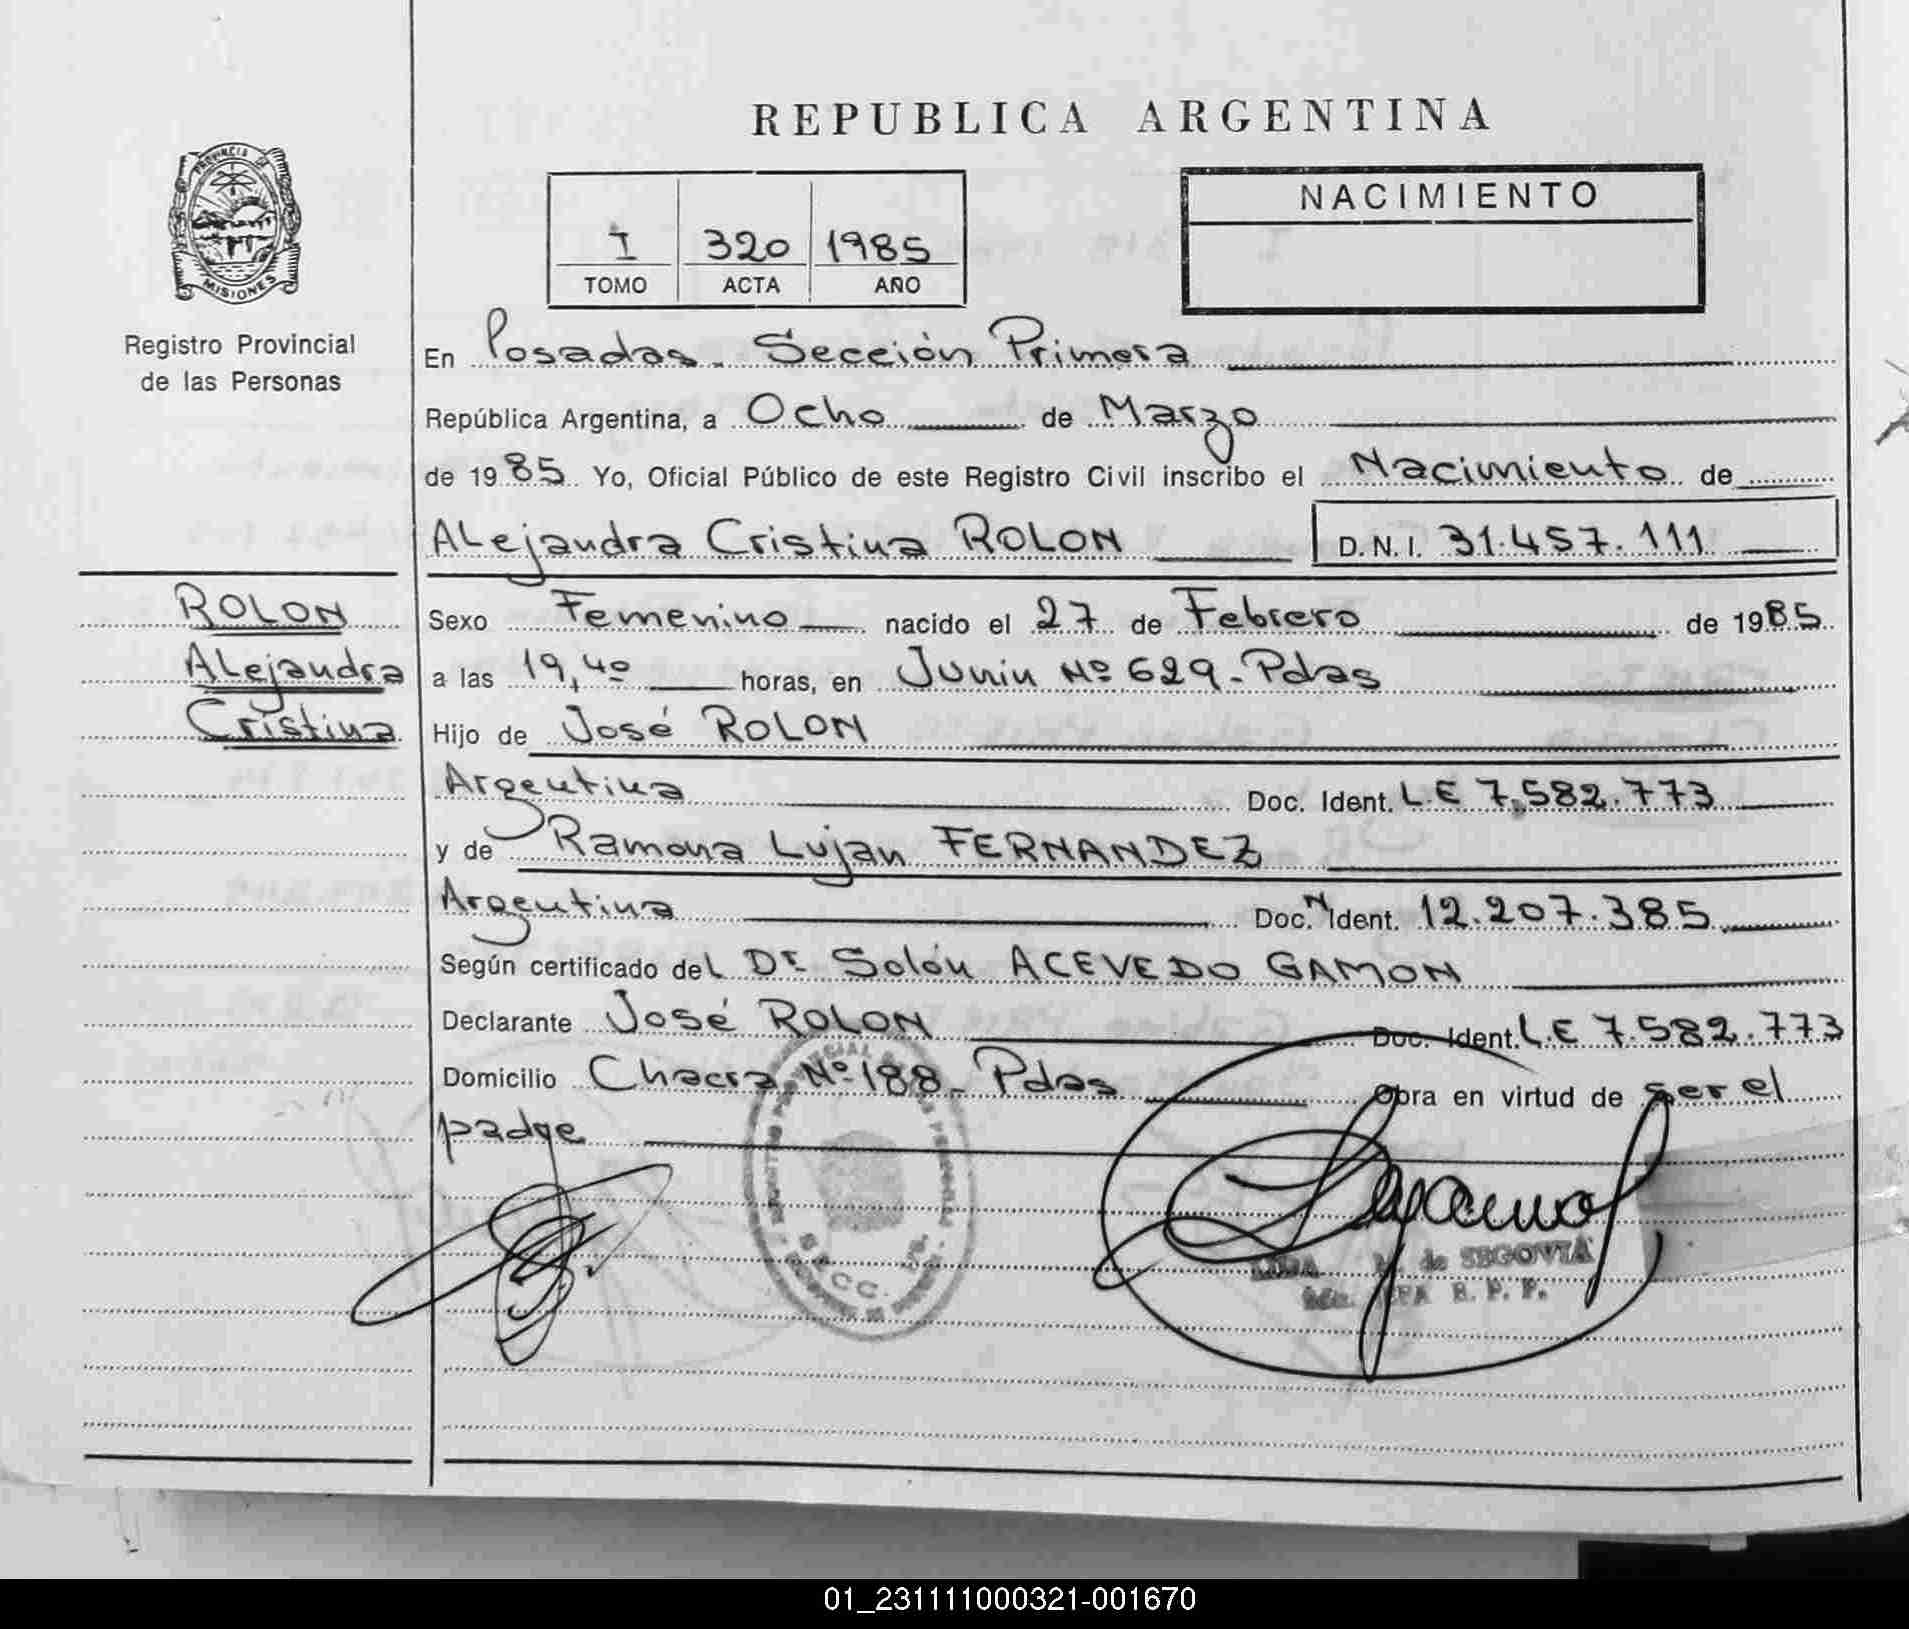 REPUBLICA ARGENTINA
PROVINCIA DE
MISIONES
Registro Provincial
de las Personas
I 320 1985
TOMO ACTA AÑO
NACIMIENTO
En Posadas. Sección Primera
República Argentina, a Ocho de Marzo
de 1985. Yo, Oficial Público de este Registro Civil inscribo el Nacimiento de
Alejandra Cristina ROLON D.N.I. 31.457.111
ROLON
Alejandra
Cristina
Sexo Femenino nacido el 27 de Febrero de 1985
a las 19,40 horas, en Junin Nº 629-Pdas
Hijo de José ROLON
Argentina Doc. Ident. L.E 7.582.773
y de Ramona Lujan FERNANDEZ
Argentina Doc. N Ident. 12.207.385
Según certificado del Dr. Solón ACEVEDO GAMON
Declarante José ROLON Doc. Ident. L.E 7.582.773
Domicilio Chacra Nº 188-Pdas Obra en virtud de ser el
padre
M. de SEGOVIA
R. P. P.
01_231111000321-001670